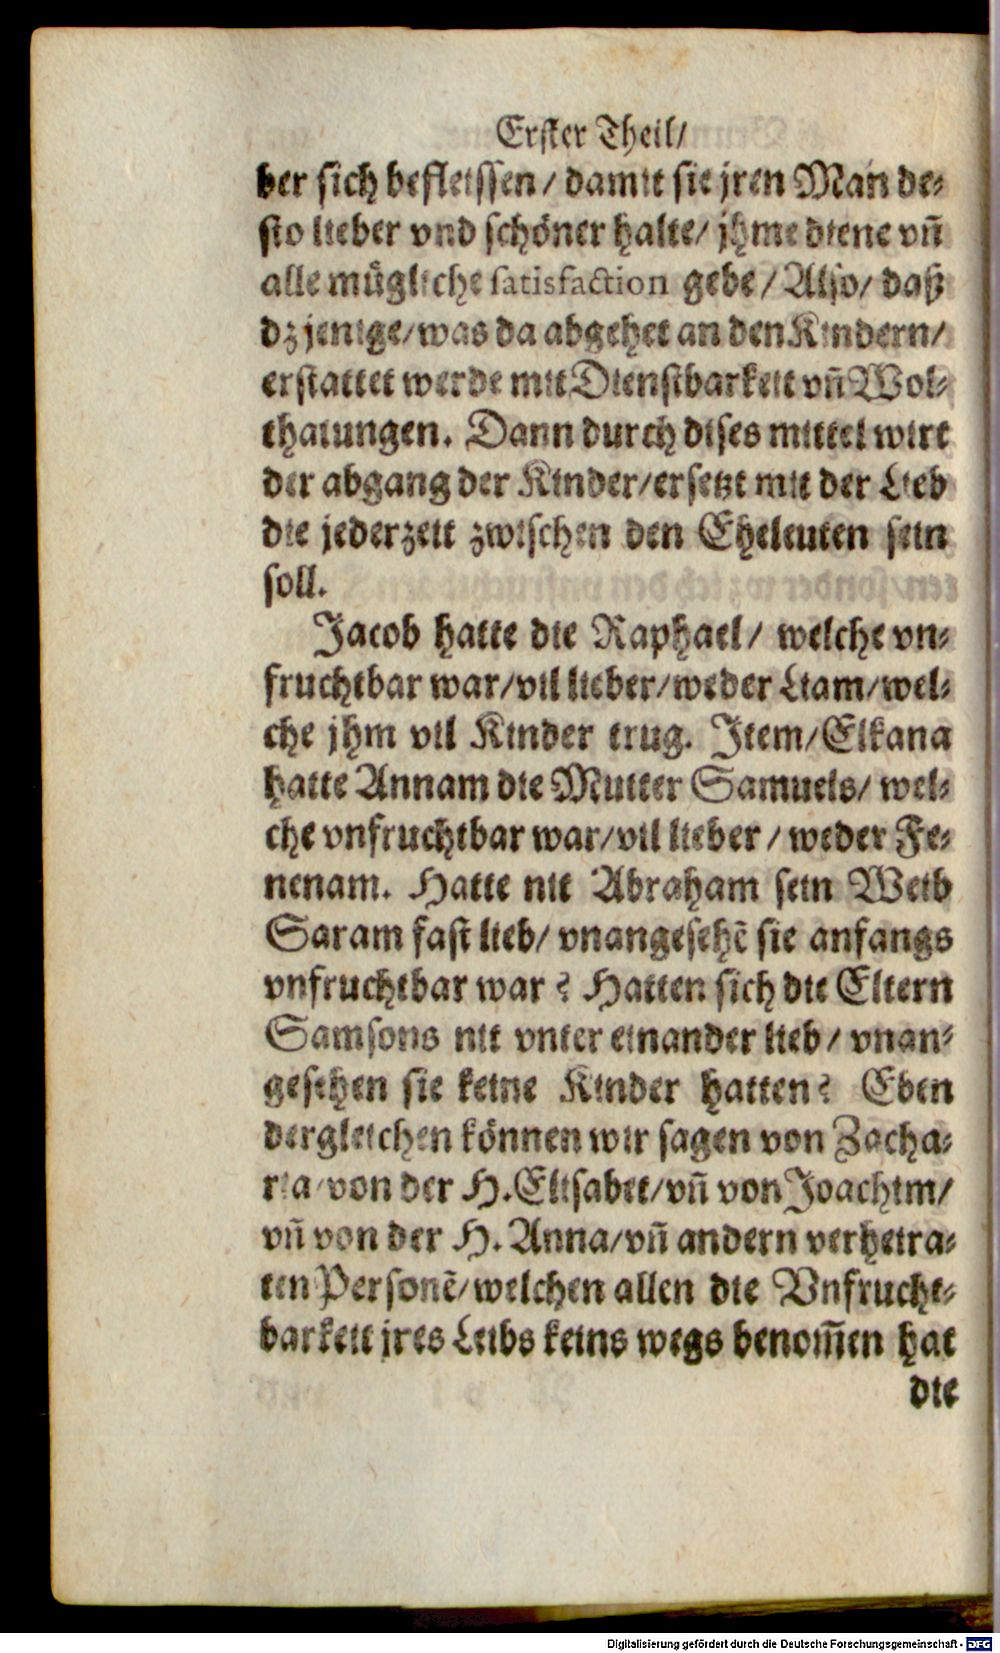 Erster Theil/
ber sich befleissen/ damit sie jren Man de-
sto lieber vnd schöner halte/ jhme diene vñ
alle mügliche satisfaction gebe/ Also/ daß
dz jenige/ was da abgehet an den Kindern/
erstattet werde mit Dienstbarkeit vñ Wol-
thatungen. Dann durch dises mittel wirt
der abgang der Kinder/ ersetzt mit der Lieb
die jederzeit zwischen den Eheleuten sein
soll.
Jacob hatte die Raphael/ welche vn-
fruchtbar war/ vil lieber/ weder Liam/ wel-
che jhm vil Kinder trug. Item/ Elkana
hatte Annam die Mutter Samuels/ wel-
che vnfruchtbar war/ vil lieber/ weder Fe-
nenam. Hatte nit Abraham sein Weib
Saram fast lieb/ vnangesehẽ sie anfangs
vnfruchtbar war? Hatten sich die Eltern
Samsons nit vnter einander lieb/ vnan-
gesehen sie keine Kinder hatten? Eben
dergleichen können wir sagen von Zacha-
ria/ von der H. Elisabet/ vñ von Joachim/
vñ von der H. Anna/ vñ andern verheira-
ten Personẽ/ welchen allen die Vnfrucht-
barkeit jres Leibs keins wegs benom̃en hat
die
Digitalisierung gefördert durch die Deutsche Forschungsgemeinschaft - DFG